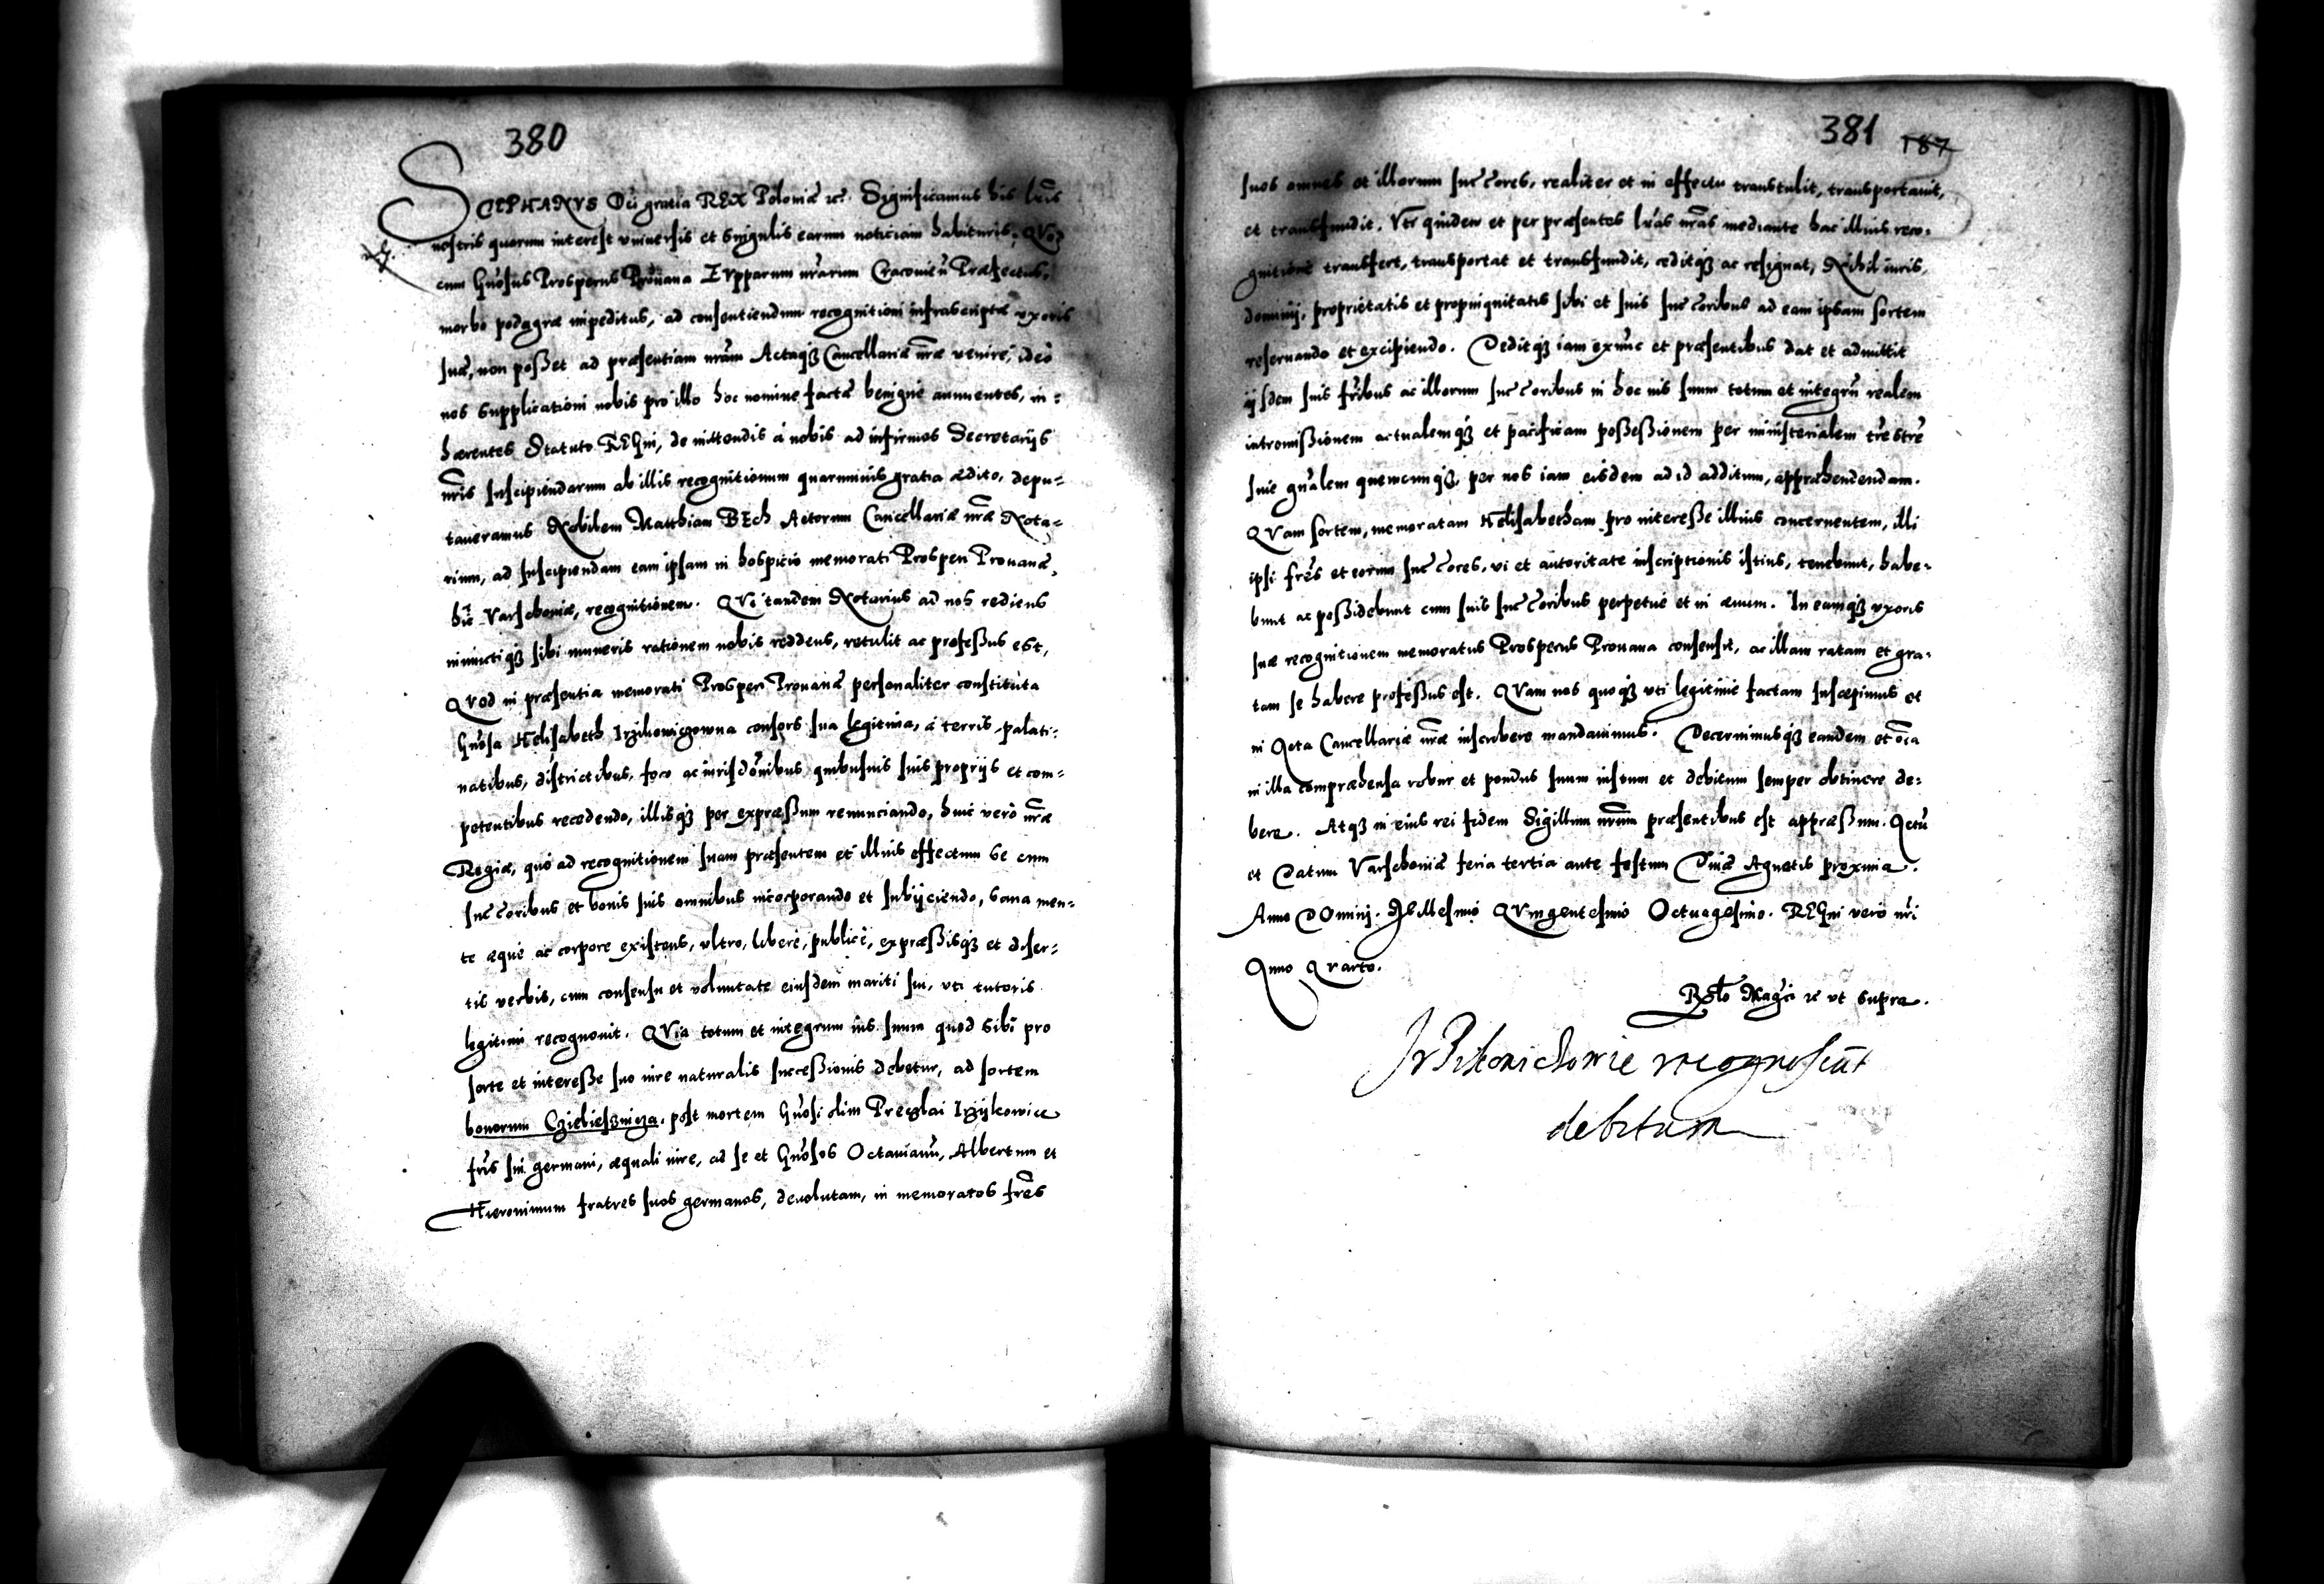 380
STEPHANVS Dei gratia REX Poloniæ etc. Significamus his lrīs
nostris quorum interest vniuersis et singulis earum noticiam habituris. QVod
cum Gn̄osus Prosperus Prouana Zupparum nr̄arum Cracouien̄ Præfectus,
morbo podagræ impeditus, ad consentiendum recognitioni infrascriptæ vxoris
suæ, non posset ad præsentiam nrām Actaqʒ Cancellariæ nrǣ venire, ideo
nos supplicationi nobis pro illo hoc nomine factæ benigne annuentes, in:
hærentes Statuto REGni, de mittendis à nobis ad infirmos Secretarijs
nrīs suscipiendarum ab illis recognitionum quarumuis gratia ædito, depu=
taueramus Nobilem Matthiam BEch Actorum Cancellariæ nrǣ Nota=
rium, ad suscipiendam eam ipsam in hospicio memorati Prosperi Prouanæ,
hic Varschouiæ, recognitionem. QVi tandem Notarius ad nos rediens
iniunctiqʒ sibi muneris rationem nobis reddens, retulit ac professus est,
QVod in præsentia memorati Prosperi Prouanæ personaliter constituta
Gn̄osa Helisabeth Irzikowiczowna consors sua legitima, à terris, palati:
natibus, districtibus, foro ac iurisdōnibus quibusuis suis proprijs et com=
petentibus recedendo, illisqʒ per expræssum renunciando, huic verò nrǣ
Regiæ, quo ad recognitionem suam præsentem et illius effectum se cum
succ̄oribus et bonis suis omnibus incorporando et subijciendo, sana men=
te æque ac corpore existens, vltro, libere, publice, expræssisqʒ et diser=
tis verbis, cum consensu et voluntate eiusdem mariti sui, vti tutoris
legitimi recognouit. QVia totum et integrum ius suum quod sibi pro
sorte et interesse suo iure naturalis successionis debetur, ad sortem
bonorum Cziebiesznicza, post mortem Gn̄osi olim Preczlai Irzykowicz
frīs sui germani, æquali iure, ad se et Gn̄osos Octauianū, Albertum et
Hieronimum fratres suos germanos, deuolutam, in memoratos frēs
381 187
suos omnes et illorum succ̄ores, realiter et in effectu transtulit, transportauit,
et transfundit. Vti quidem et per præsentes lrās nrās mediante hac illius reco:
gnitione transfert, transportat et transfundit, ceditqʒ ac resignat, Nihil iuris,
dominij, proprietatis et propinquitatis sibi et suis succ̄oribus ad eam ipsam sortem
reseruando et excipiendo. Deditqʒ iam ex nunc et præsentibus dat et admittit
ijsdem suis frībus ac illorum succ̄oribus in hoc ius suum totum et integrū realem
intromissionem actualemqʒ et pacificam possessionem per ministerialem trēstrē
siue gnālem quemcunqʒ, per nos iam eisdem ad id additum, appræhendendam.
QVam sortem, memoratam Helisabetham pro interesse illius concernentem, illi
ipsi frēs et eorum succ̄ores, vi et autoritate inscriptionis istius, tenebunt, habe=
bunt ac possidebunt cum suis succ̄oribus perpetue et in æuum. In eamqʒ vxoris
suæ recognitionem memoratus Prosperus Prouana consensit, ac illam ratam et gra:
tam se habere professus est. QVam nos quoqʒ vti legitime factam suscæpimus et
in Acta Cancellariæ nrǣ inscribere mandauimus. Decernimusqʒ eandem et oīa
in illa compræhensa robur et pondus suum iustum et debitum semper obtinere de:
bere. Atqʒ in eius rei fidem Sigillum nrūm præsentibus est appræssum. Actū
et Datum Varschouiæ feria tertia ante festum Diuæ Agnetis proxima.
Anno DOmini. Millesimo QVingentesimo Octuagesimo. REGni verò nrī
Anno QVarto.
Rel̄o Magci etc vt supra.
Irzikowiczowie recognoscūt
debitum